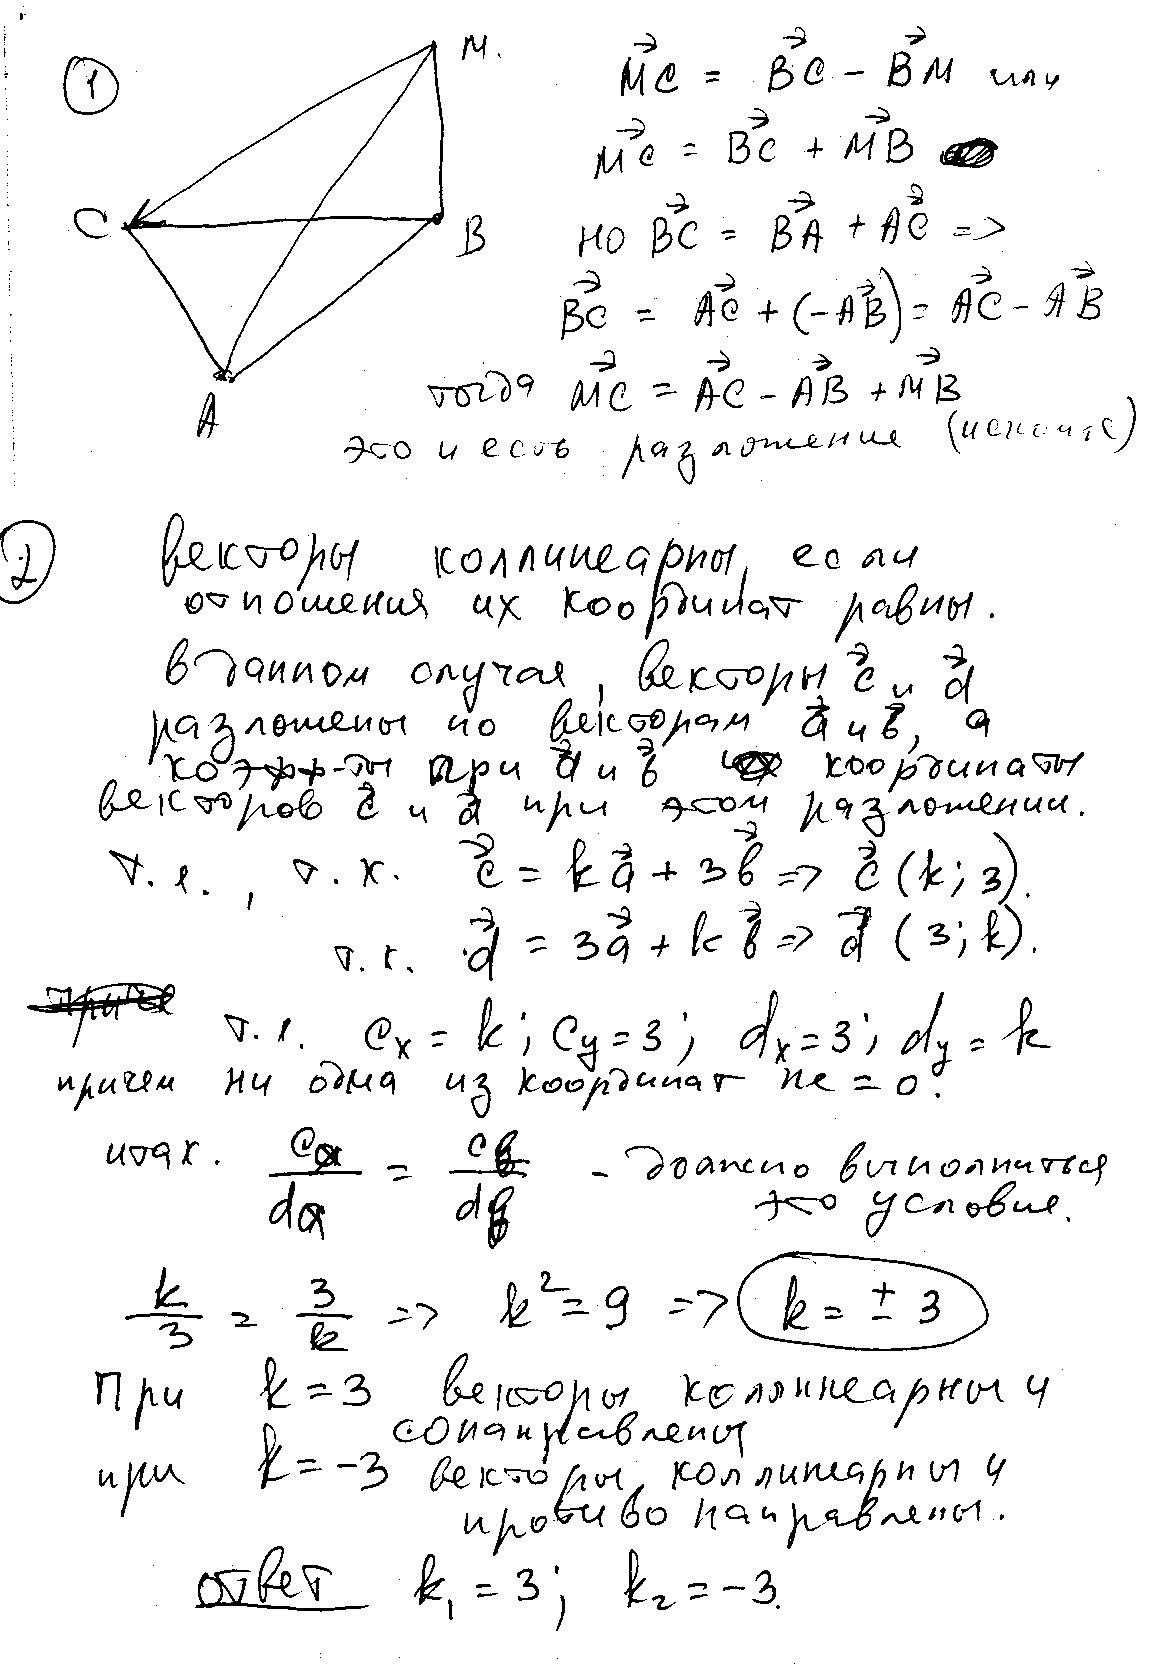 1
M.
C
B
A
MC = BC - BM или
MC = BC + MB
но BC = BA + AC =>
BC = AC + (-AB) = AC - AB
тогда MC = AC - AB + MB
это и есть разложение
2
векторы коллинеарны, если
отношения их координат равны.
в данном случая, векторы c и d
разложены по векторам a и b, а
коэфф-ты при a и b координаты
векторов c и d при этом разложении.
т.е., т.к. c = ka + 3b => c (k; 3).
т.к. d = 3a + kb => d (3; k).
т.е. Cx = k; Cy = 3; dx = 3; dy = k
причем ни одна из координат не = 0.
итак. Ca/da = Cb/db - должно выполниться
это условие.
k/3 = 3/k => k² = 9 => k = ± 3
При k = 3 векторы коллинеарны и
сонаправлены
при k = -3 векторы коллинеарны и
противо направлены.
ответ k₁ = 3; k₂ = -3.